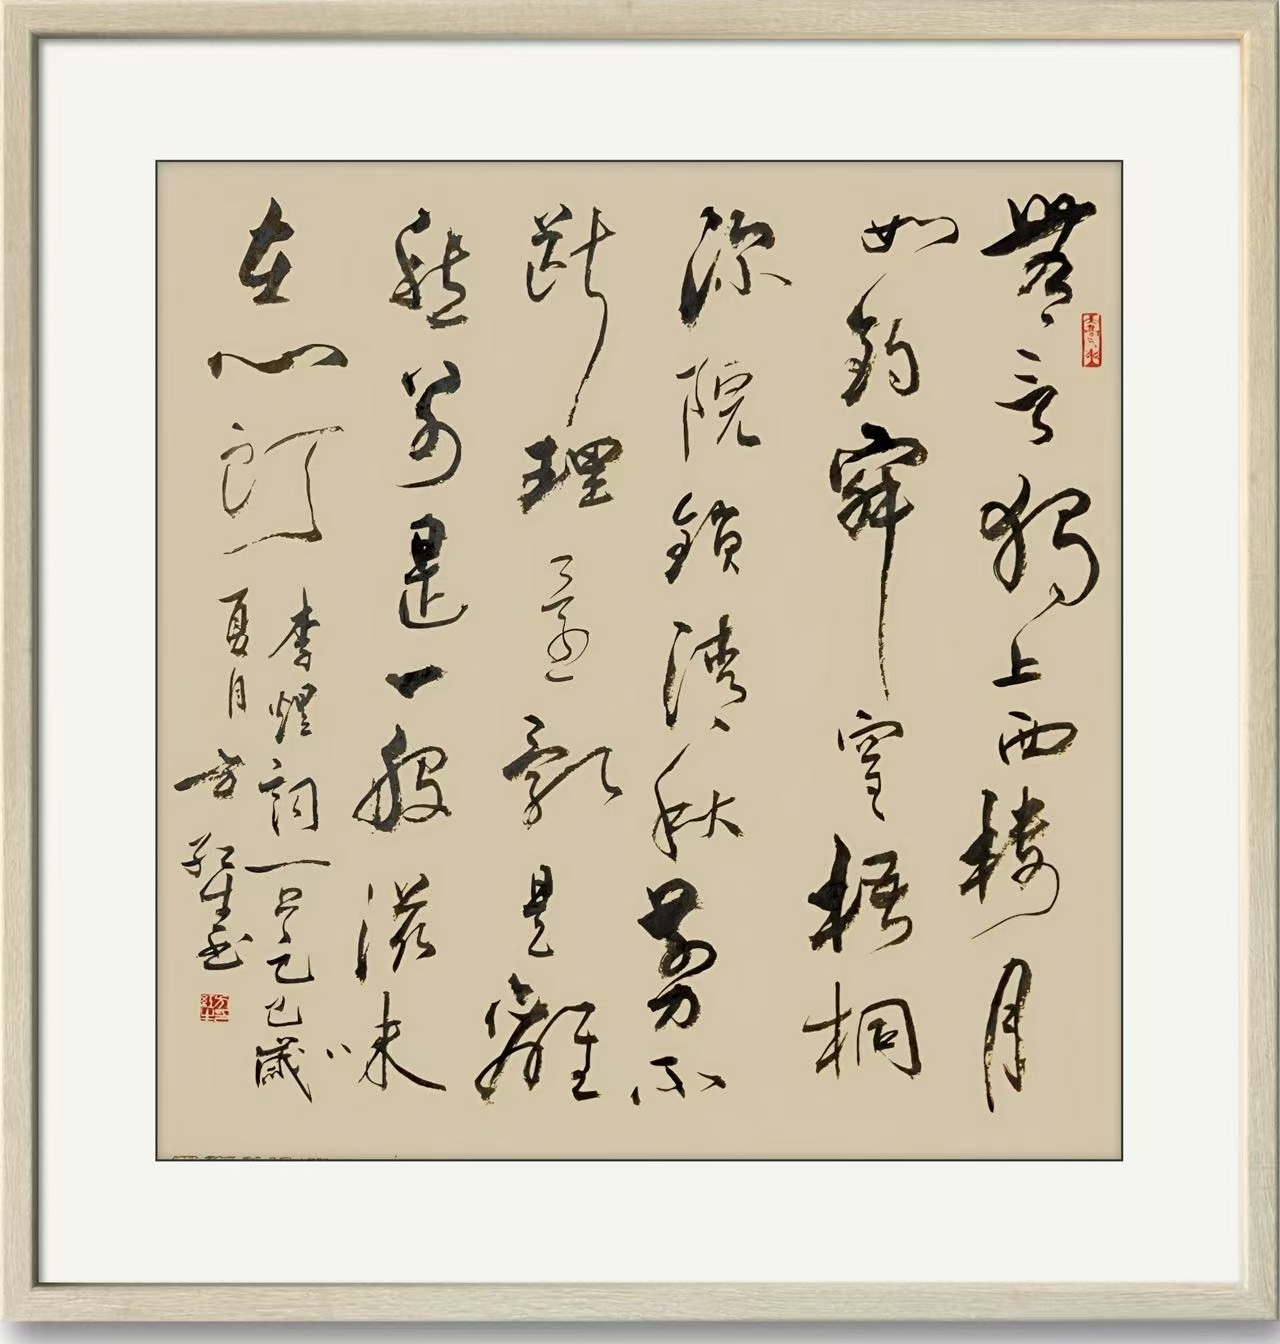 無言獨上西樓月
如鈎寂寞梧桐
深院鎖清秋剪不
斷理還亂是離
愁別是一般滋味
在心頭
李煜詞一首乙巳歲
夏月方紅生書